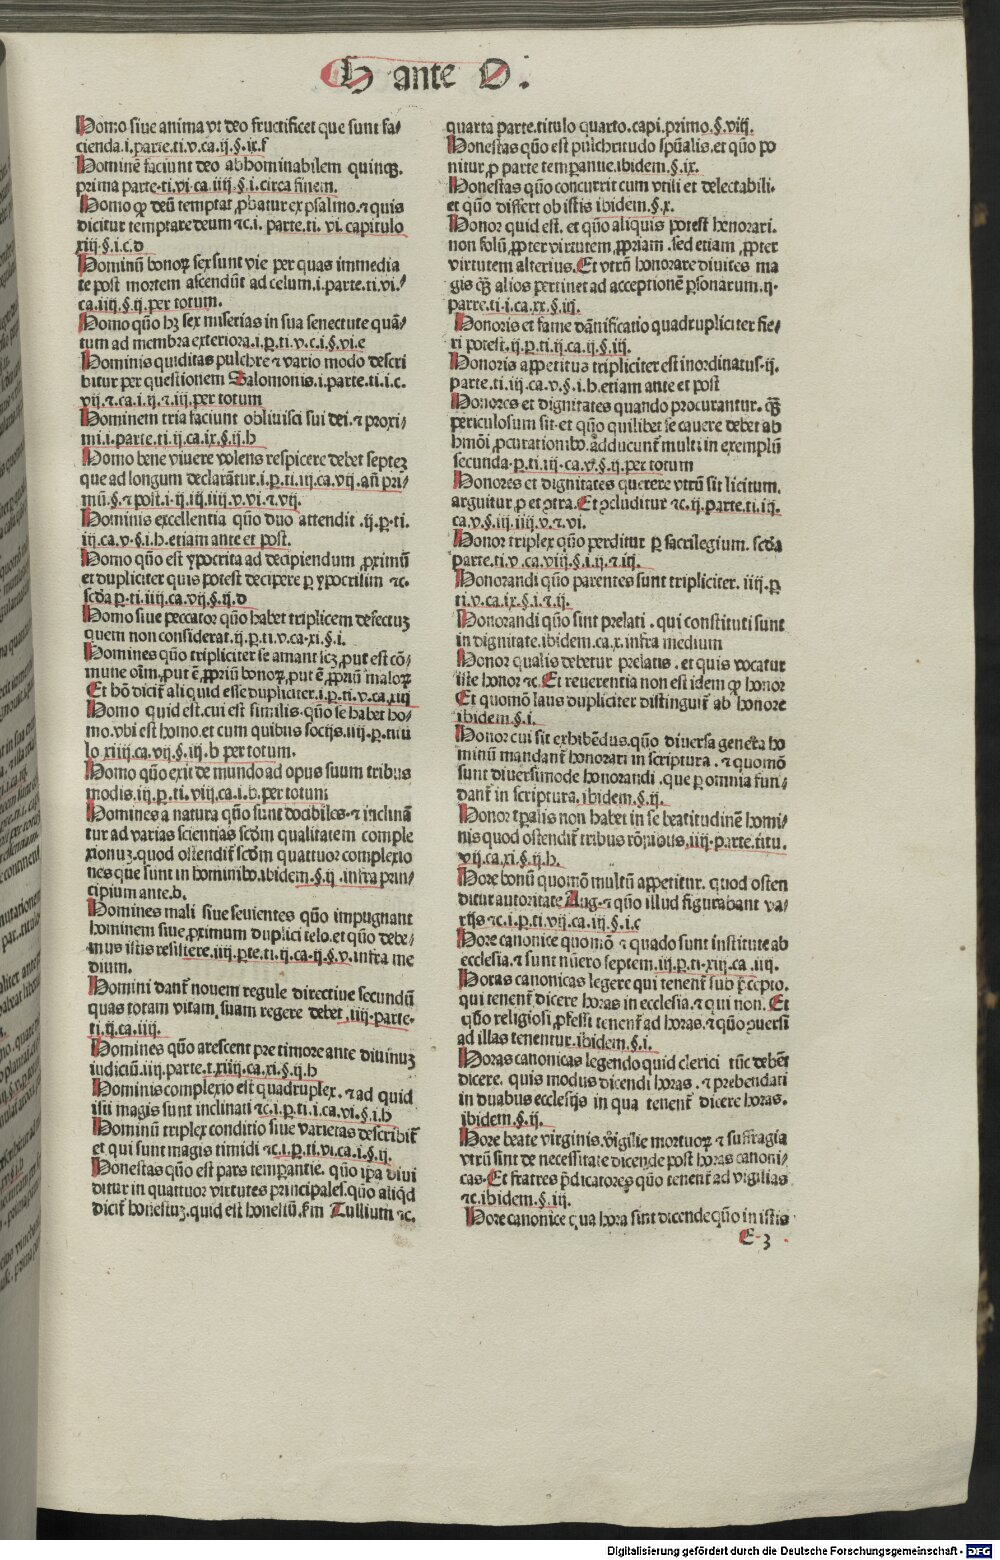 H ante O.
Homo siue anima vt deo fructificet que sunt fa⸗
cienda.i.parte.ti.v.ca.ij.§.ix.f
Hominē faciunt deo abhominabilem quinqꝫ.
prima parte.ti.vi.ca.iiij.§.i.circa finem.
Homo ꝙ deū temptat ꝓbatur ex psalmo.⁊ quis
dicitur temptare deum ⁊c.i. parte.ti. vi. capitulo
xiij.§.i.c.d
Hominū bonoꝝ sex sunt vie per quas immedia
te post mortem ascendūt ad celum.i.parte.ti.vi.⸗
ca.iiij.§.ij.per totum.
Homo quō hꝫ sex miserias in sua senectute quā⸗
tum ad membra exteriora.i.ꝑ.ti.v.c.i.§.vi.e
Hominis quiditas pulchre ⁊ vario modo descri
bitur per questionem Salomonis.i.parte.ti.i.c.
vij.⁊.ca.i.ij.⁊.iij.per totum
Hominem tria faciunt obliuisci sui dei.⁊ proxi⸗
mi.i.parte.ti.ij.ca.ix.§.ij.h
Homo bene viuere volens respicere debet septeꝫ
que ad longum declarātur.i.ꝑ.ti.iij.ca.vij.añ pri⸗
mū.§.⁊ post.i.ij.iij.iiij.v.vi.⁊.vij.
Hominis excellentia quō duo attendit.ij.ꝑ.ti.
iij.ca.v.§.i.h.etiam ante et post.
Homo quō est ypocrita ad decipiendum ꝓximū
et dupliciter quis potest decipere ꝑ ypocrisim ⁊c.
scd̄a ꝑ.ti.iiij.ca.vij.§.ij.d
Homo siue peccator quō habet triplicem defectuꝫ
quem non considerat.ij.ꝑ.ti.v.ca.xi.§.i.
Homines quō tripliciter se amant scꝫ ꝓut est cō⸗
mune oīm.ꝓut ē ꝓpriū bonoꝝ.ꝓut ē ꝓpriū maloꝝ
Et hō dicit̄ aliquid esse dupliciter.i.ꝑ.ti.v.ca.xiij
Homo quid est.cui est similis.quō se habet ho⸗
mo.vbi est homo.et cum quibus socijs.iij.ꝑ.titu
lo xiiij.ca.vij.§.iij.b per totum.
Homo quō exit de mundo ad opus suum tribus
modis.iij.ꝑ.ti.viij.ca.i.b.per totum
Homines a natura quō sunt docibiles.⁊ inclinā
tur ad varias scientias scd̄m qualitatem comple
xionuꝫ.quod ostendit̄ scd̄m quattuor complexio
nes que sunt in hominibꝰ.ibidem.§.ij.infra prin⸗
cipium ante.b.
Homines mali siue seuientes quō impugnant
hominem siue ꝓximum duplici telo.et quō debe⸗
mus illis resistere.iij.ꝑte.ti.ij.ca.ij.§.v.infra me
dium.
Homini dant̄ nouem regule directiue secundū
quas totam vitam suam regere debet.iij.parte.
ti.ij.ca.iij.
Homines quō arescent pre timore ante diuinuꝫ
iudiciū.iij.parte.t.xiij.ca.xi.§.ij.h
Hominis complexio est quadruplex.⁊ ad quid
isti magis sunt inclinati ⁊c.i.ꝑ.ti.i.ca.vi.§.i.h
Hominū triplex conditio siue varietas describit̄
et qui sunt magis timidi ⁊c.i.ꝑ.ti.vi.ca.i.§.ij.
Honestas quō est pars temꝑantie. quō ip̄a diui
ditur in quattuor virtutes principales.quō aliqd̄
dicit̄ honestuꝫ.quid est honestū.s̄m Tullium ⁊c.
quarta parte.titulo quarto.capi.primo.§.viij.
Honestas quō est pulchritudo spūalis.et quō po
nitur ꝓ parte temꝑantie.ibidem.§.ix.
Honestas quō concurrit cum vtili et delectabili.
et quō differt ob istis ibidem.§.x.
Honor quid est. et quō aliquis potest honorari.
non solū ꝓpter virtutem ꝓpriam.sed etiam ꝓpter
virtutem alterius.Et vtrū honorare diuites ma
gis qꝫ alios pertinet ad acceptionē ꝑsonarum.ij.
parte.ti.i.ca.xx.§.iij.
Honoris et fame dānificatio quadrupliciter fie⸗
ri potest.ij.ꝑ.ti.ij.ca.ij.§.iij.
Honoris appetitus tripliciter est inordinatus.ij.
parte.ti.iij.ca.v.§.i.h.etiam ante et post
Honores et dignitates quando procurantur. qꝫ
periculosum sit.et quō quilibet se cauere debet ab
hmōi ꝓcurationibꝰ.adducunt̄ multi in exemplū
secunda.ꝑ.ti.iij.ca.v.§.ij.per totum
Honores et dignitates querere vtrū sit licitum.
arguitur ꝓ et ↄtra.Et ↄcluditur ⁊c.ij.parte.ti.iij.
ca.v.§.iij.iiij.v.⁊.vi.
Honor triplex quō perditur ꝑ sacrilegium. scd̄a
parte.ti.v.ca.viij.§.i.ij.⁊.iij.
Honorandi quō parentes sunt tripliciter. iiij.ꝑ
ti.v.ca.ix.§.i.⁊.ij.
Honorandi quō sint prelati.qui constituti sunt
in dignitate.ibidem.ca.x.infra medium
Honor qualis debetur prelatis.et quis vocatur
iste honor ⁊c.Et reuerentia non est idem ꝙ honor
Et quomō laus dupliciter distinguit̄ ab honore
ibidem.§.i.
Honor cui sit exhibēdus.quō diuersa genera ho
minū mandant̄ honorari in scriptura.⁊ quomō
sunt diuersimode honorandi.que ꝑ omnia fun⸗
dant̄ in scriptura.ibidem.§.ij.
Honor tꝑalis non habet in se beatitudinē homi⸗
nis quod ostendit̄ tribus rōnibus.iiij.parte.titu.
vij.ca.xi.§.ij.h.
Hore bonū quomō multū appetitur. quod osten
ditur autoritate Aug.⁊ quō illud figurabant va⸗
rijs ⁊c.i.ꝑ.ti.vij.ca.iij.§.i.c
Hore canonice quomō ⁊ quādo sunt institute ab
ecclesia.⁊ sunt nūero septem.iij.ꝑ.ti.xiij.ca.iiij.
Horas canonicas legere qui tenent̄ sub p̄cepto.
qui tenent̄ dicere horas in ecclesia.⁊ qui non. Et
quō religiosi ꝓfessi tenent̄ ad horas.⁊ quō ↄuersi
ad illas tenentur.ibidem.§.i.
Horas canonicas legendo quid clerici tūc debēt
dicere. quis modus dicendi horas.⁊ prebendati
in duabus ecclesijs in qua tenent̄ dicere horas.
ibidem.§.ij.
Hore beate virginis.vigilie mortuoꝝ ⁊ suffragia
vtrū sint de necessitate dicende post horas canoni⸗
cas.Et fratres p̄dicatores quō tenent̄ ad vigilias
⁊c.ibidem.§.iij.
Hore canonice qua hora sint dicende quō in istis
E 3
Digitalisierung gefördert durch die Deutsche Forschungsgemeinschaft - DFG